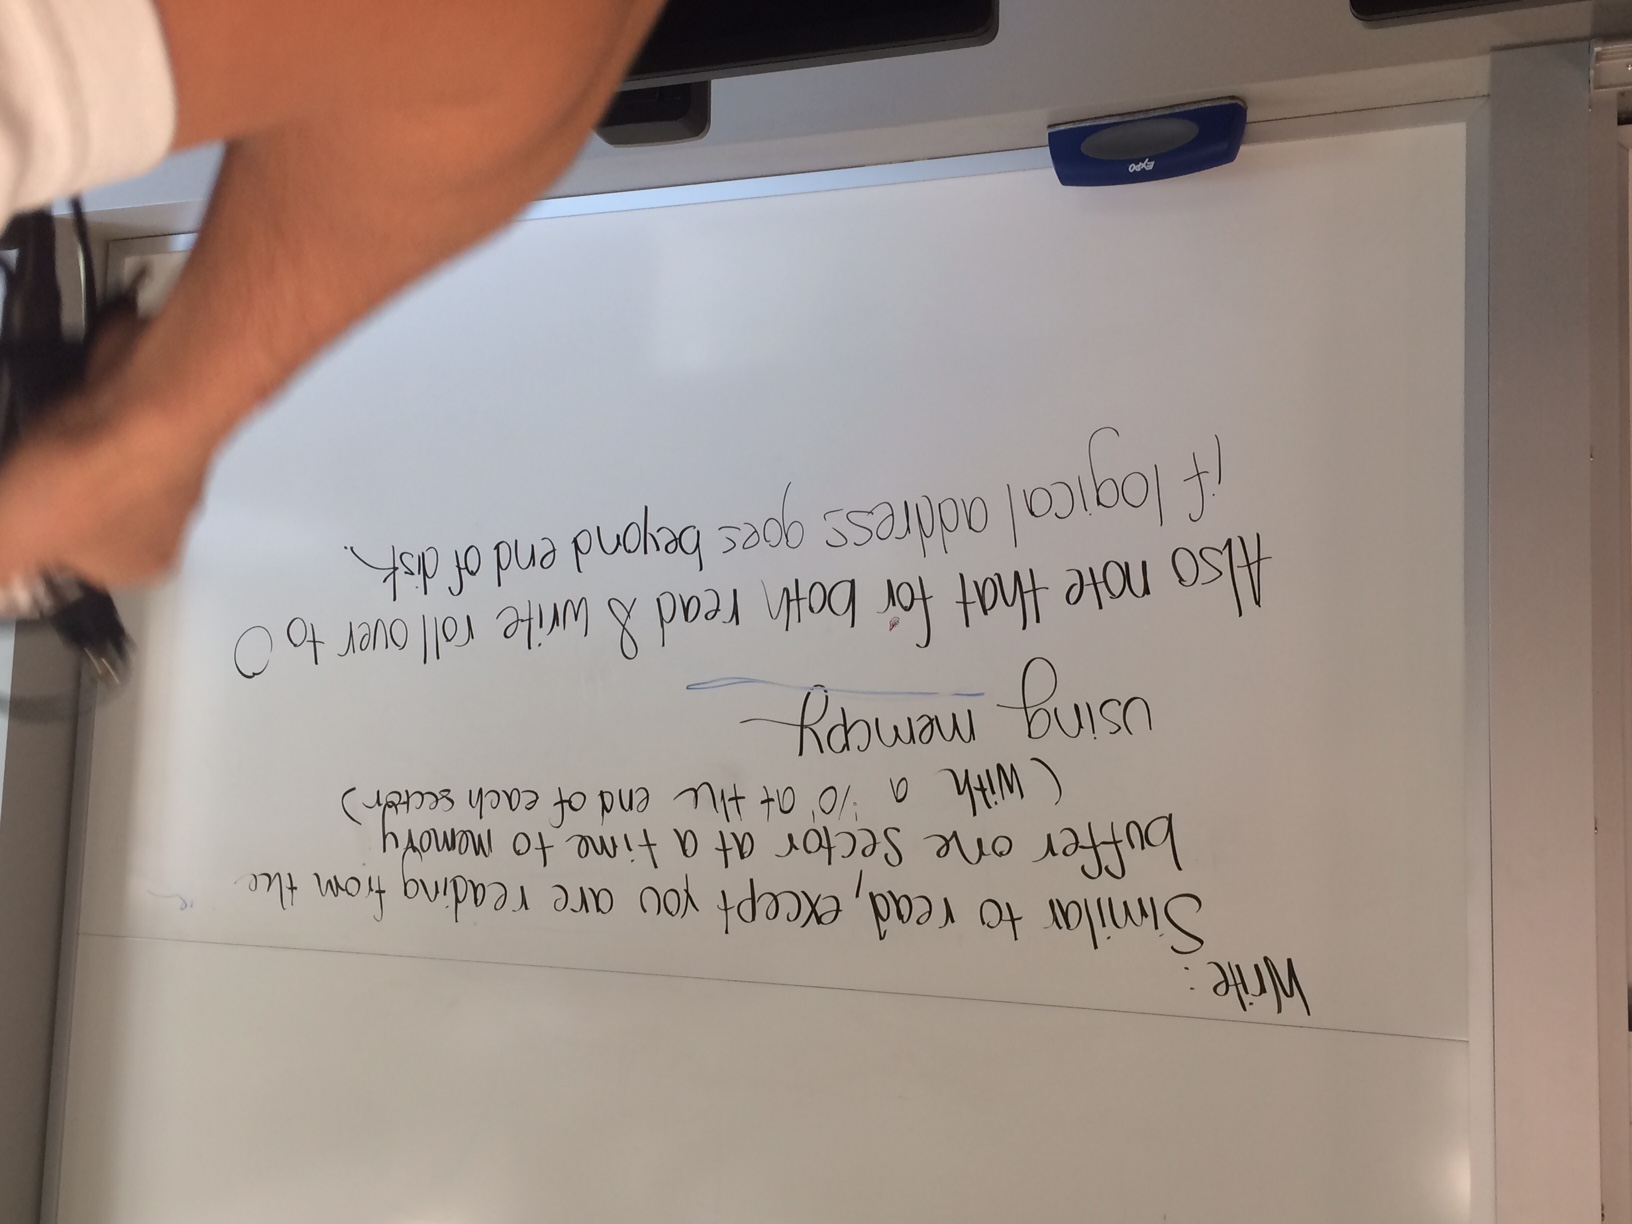 Write:
Similar to read, except you are reading from the
buffer one sector at a time to memory
(with a '/0' at the end of each sector)
using memcpy
Also note that for both read & write roll over to 0
if logical address goes beyond end of disk.
EXPO